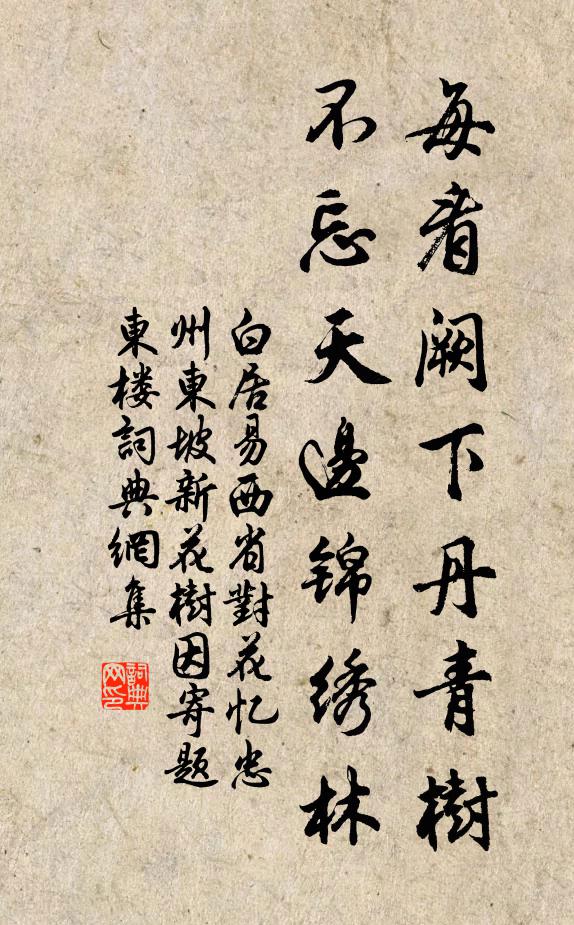 每看阙下丹青樹
不忘天邊锦绣林
白居易西省對花忆忠
州東坡新花樹因寄題
東楼詞典網集
詞典网印